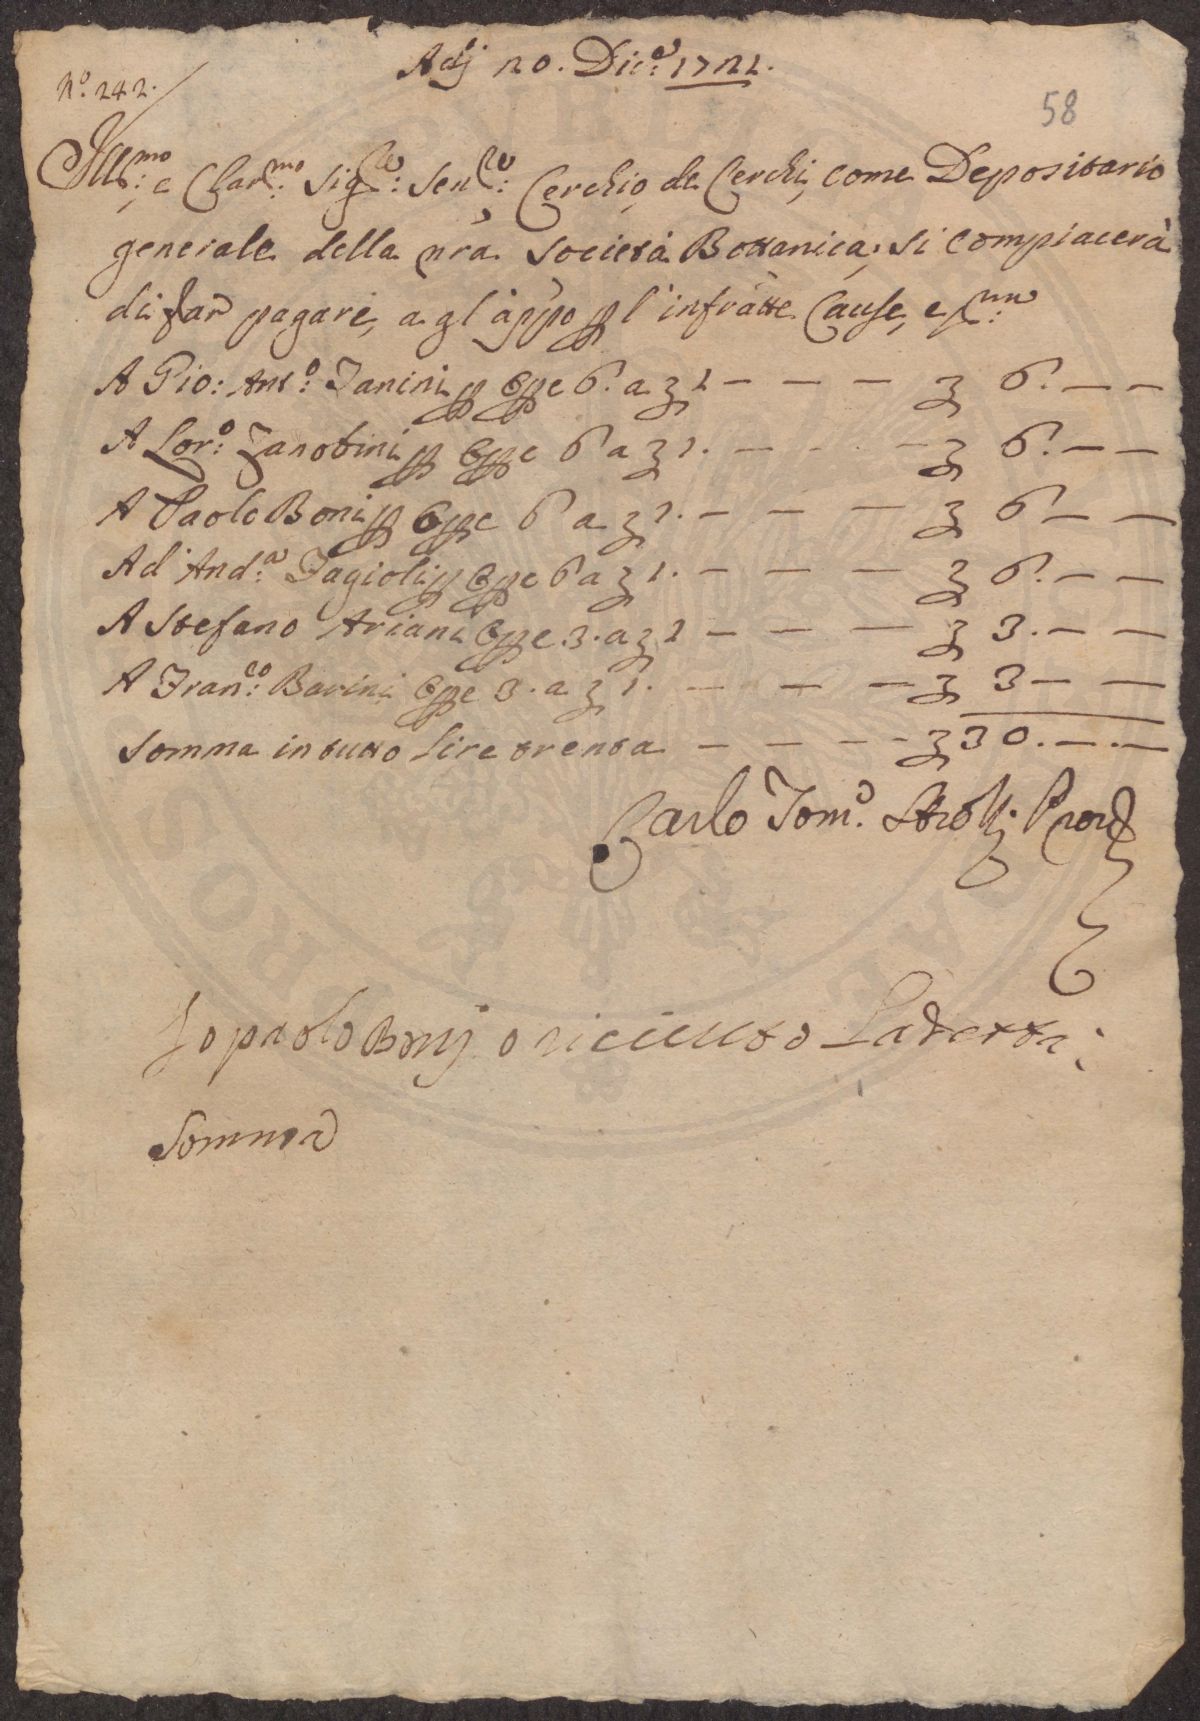 Adj 20. Dic.e 1721.
N.o 242.
58
Ill.mo e Clar.mo Sig.re Sen.re Cerchio de Cerchi, come Depositario
generale della nra Società Bottanica, si compiacerà
di far pagare, a gl'appo p l'infratte Cause, e
A Gio: Ant.o Janini p Ope 6. a £ 1 — — — £ 6. — —
A Lor.o Zanobini p Ope 6 a £ 1. — — — £ 6. — —
A Paolo Boni p Ope 6 a £ 1. — — — £ 6 — —
Ad And.a Fagioli p Ope 6 a £ 1. — — — £ 6. — —
A Stefano Ariani Ope 3. a £ 1 — — — £ 3. — —
A Fran.co Barini Ope 3. a £ 1. — — — £ 3 — —
Somma in tutto Lire trenta — — — — £ 30. — . —
Carlo Tom.o Strozzi
Io paolo Bonj o riceiuto La detta
Somma